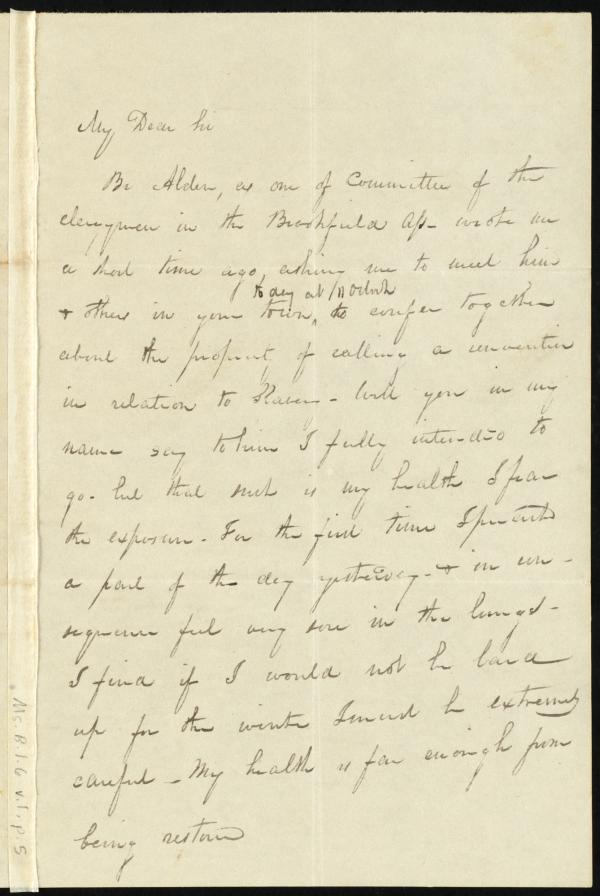 My Dear Sir
Br Alden, as one of Committee of the
clergymen in the Brookfield Ass- wrote me
a short time ago, asking me to meet him
to day at 11 Oclock
& others in your town, to confer together
about the propriety of calling a convention
in relation to Slavery - Will you in my
name say to him I fully intended to
go - but that such is my health I fear
the exposure - For the first time I preached
a part of the day yesterday - & in con-
sequence feel very sore in the lungs -
I find if I would not be laid
up for the winter I must be extremely
careful - My health is far enough from
being restored
Ms. B.1.6 v.1, p.5